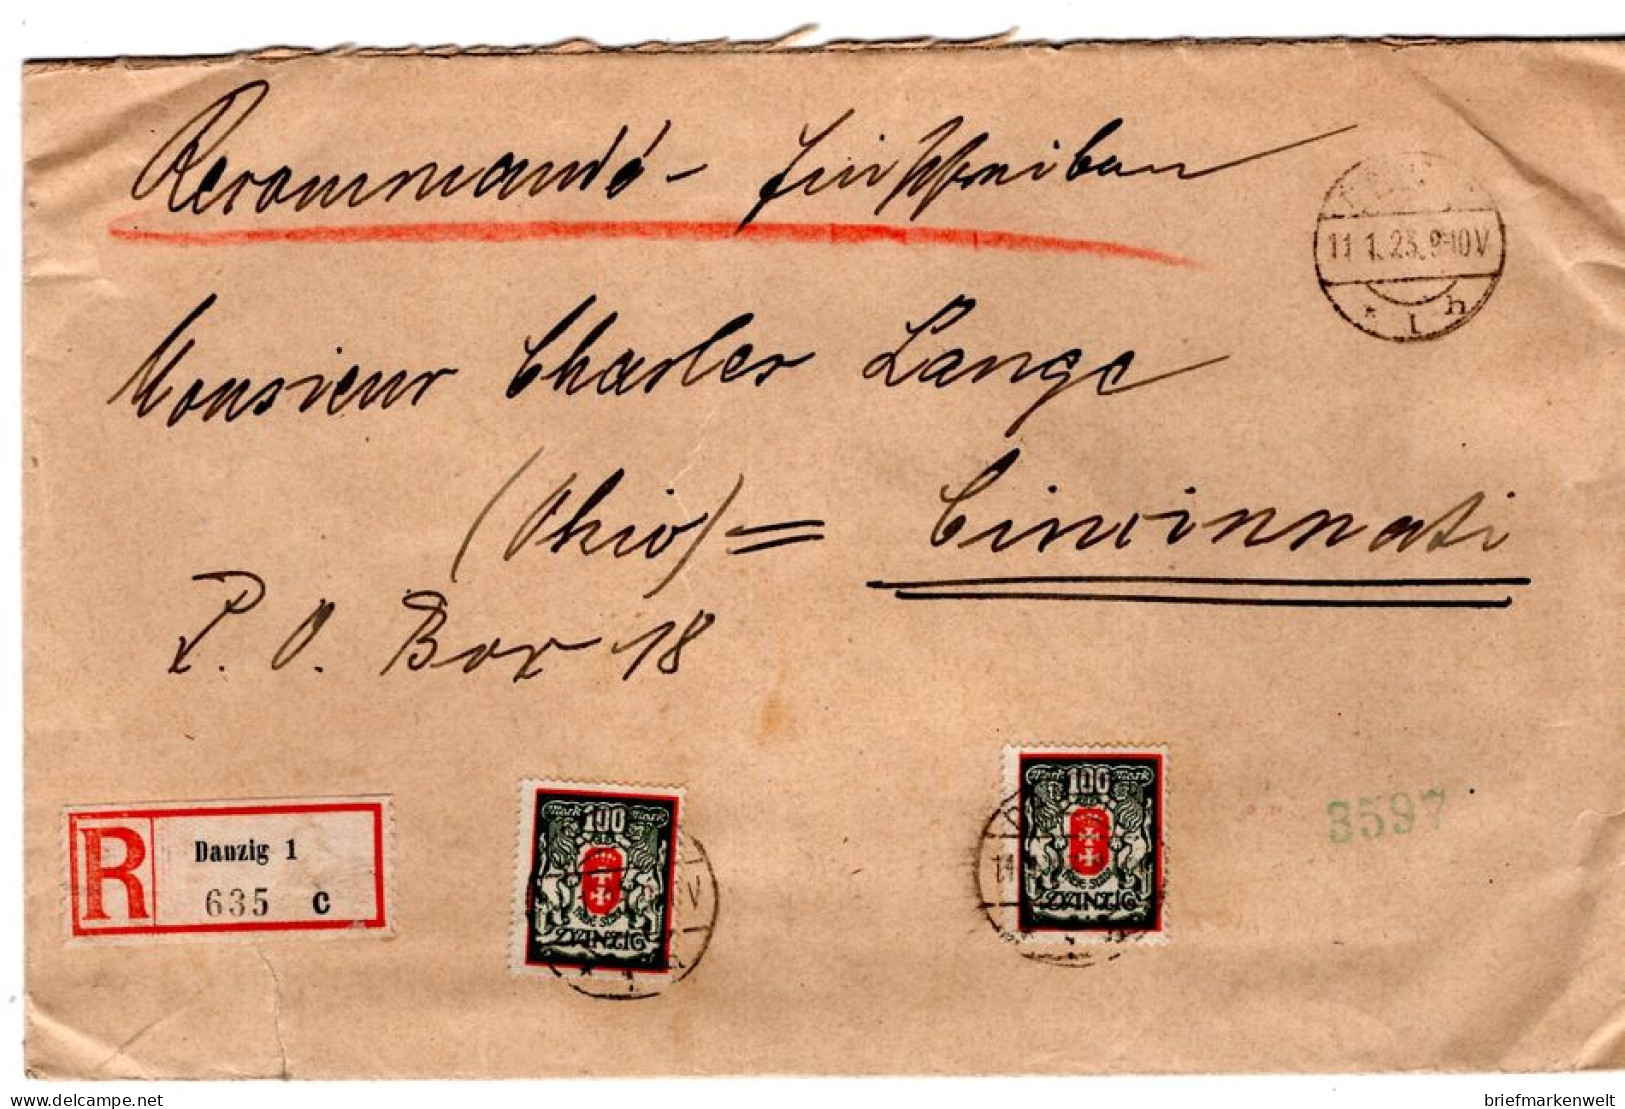 Recommandé - Einschreiben
11.1.23.9-10V
* 1 h
Monsieur Charles Lange
(Ohio) = Cincinnati
P. O. Box 18
R
Danzig 1
635 c
Mark 100 Mark
Freie Stadt
DANZIG
Mark 100 Mark
Freie Stadt
DANZIG
3597
delcampe.net
briefmarkenwelt